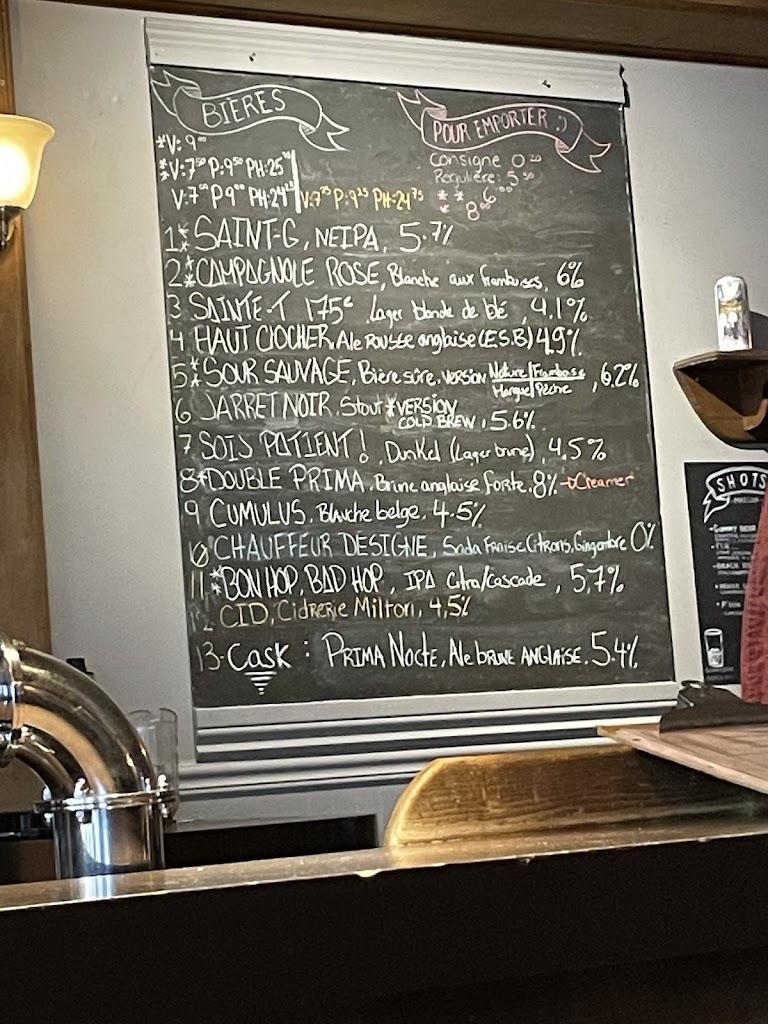 BIÈRES
POUR EMPORTER :)
*V: 9⁰⁰
Consigne 0.20
*V:7⁵⁰ P:9⁵⁰ PH:25
Régulière: 5.50
V:7⁰⁰ P9⁰⁰ PH:24²⁵ V:7²⁵ P:9²⁵ PH:24⁷⁵
* * 6⁰⁰
* 8⁰⁰
1* SAINT-G, NEIPA, 5.7%
2* CAMPAGNOLE ROSE, Blanche aux framboises, 6%
3 SAINTE-T 175e Lager blonde de blé, 4.1%
4 HAUT CLOCHER, Ale rousse anglaise (E.S.B) 4.9%
5* SOUR SAUVAGE, Bière sûre, VERSION Nature/Framboise
Mangue/Pêche, 6.2%
6 JARRET NOIR, Stout *VERSION
COLD BREW, 5.6%
7 SOIS PATIENT!, Dunkel (Lager brune), 4.5%
8* DOUBLE PRIMA, Brune anglaise forte, 8% →Creamer
9 CUMULUS, Blanche belge, 4.5%
10 CHAUFFEUR DESIGNÉ, Soda Fraise, Citrons, Gingembre 0%
11* BON HOP, BAD HOP, IPA Citra/Cascade, 5,7%
12 CID, Cidrerie Milton, 4,5%
13- Cask : PRIMA NOCTE, Ale brune ANGLAISE. 5.4%
SHOTS